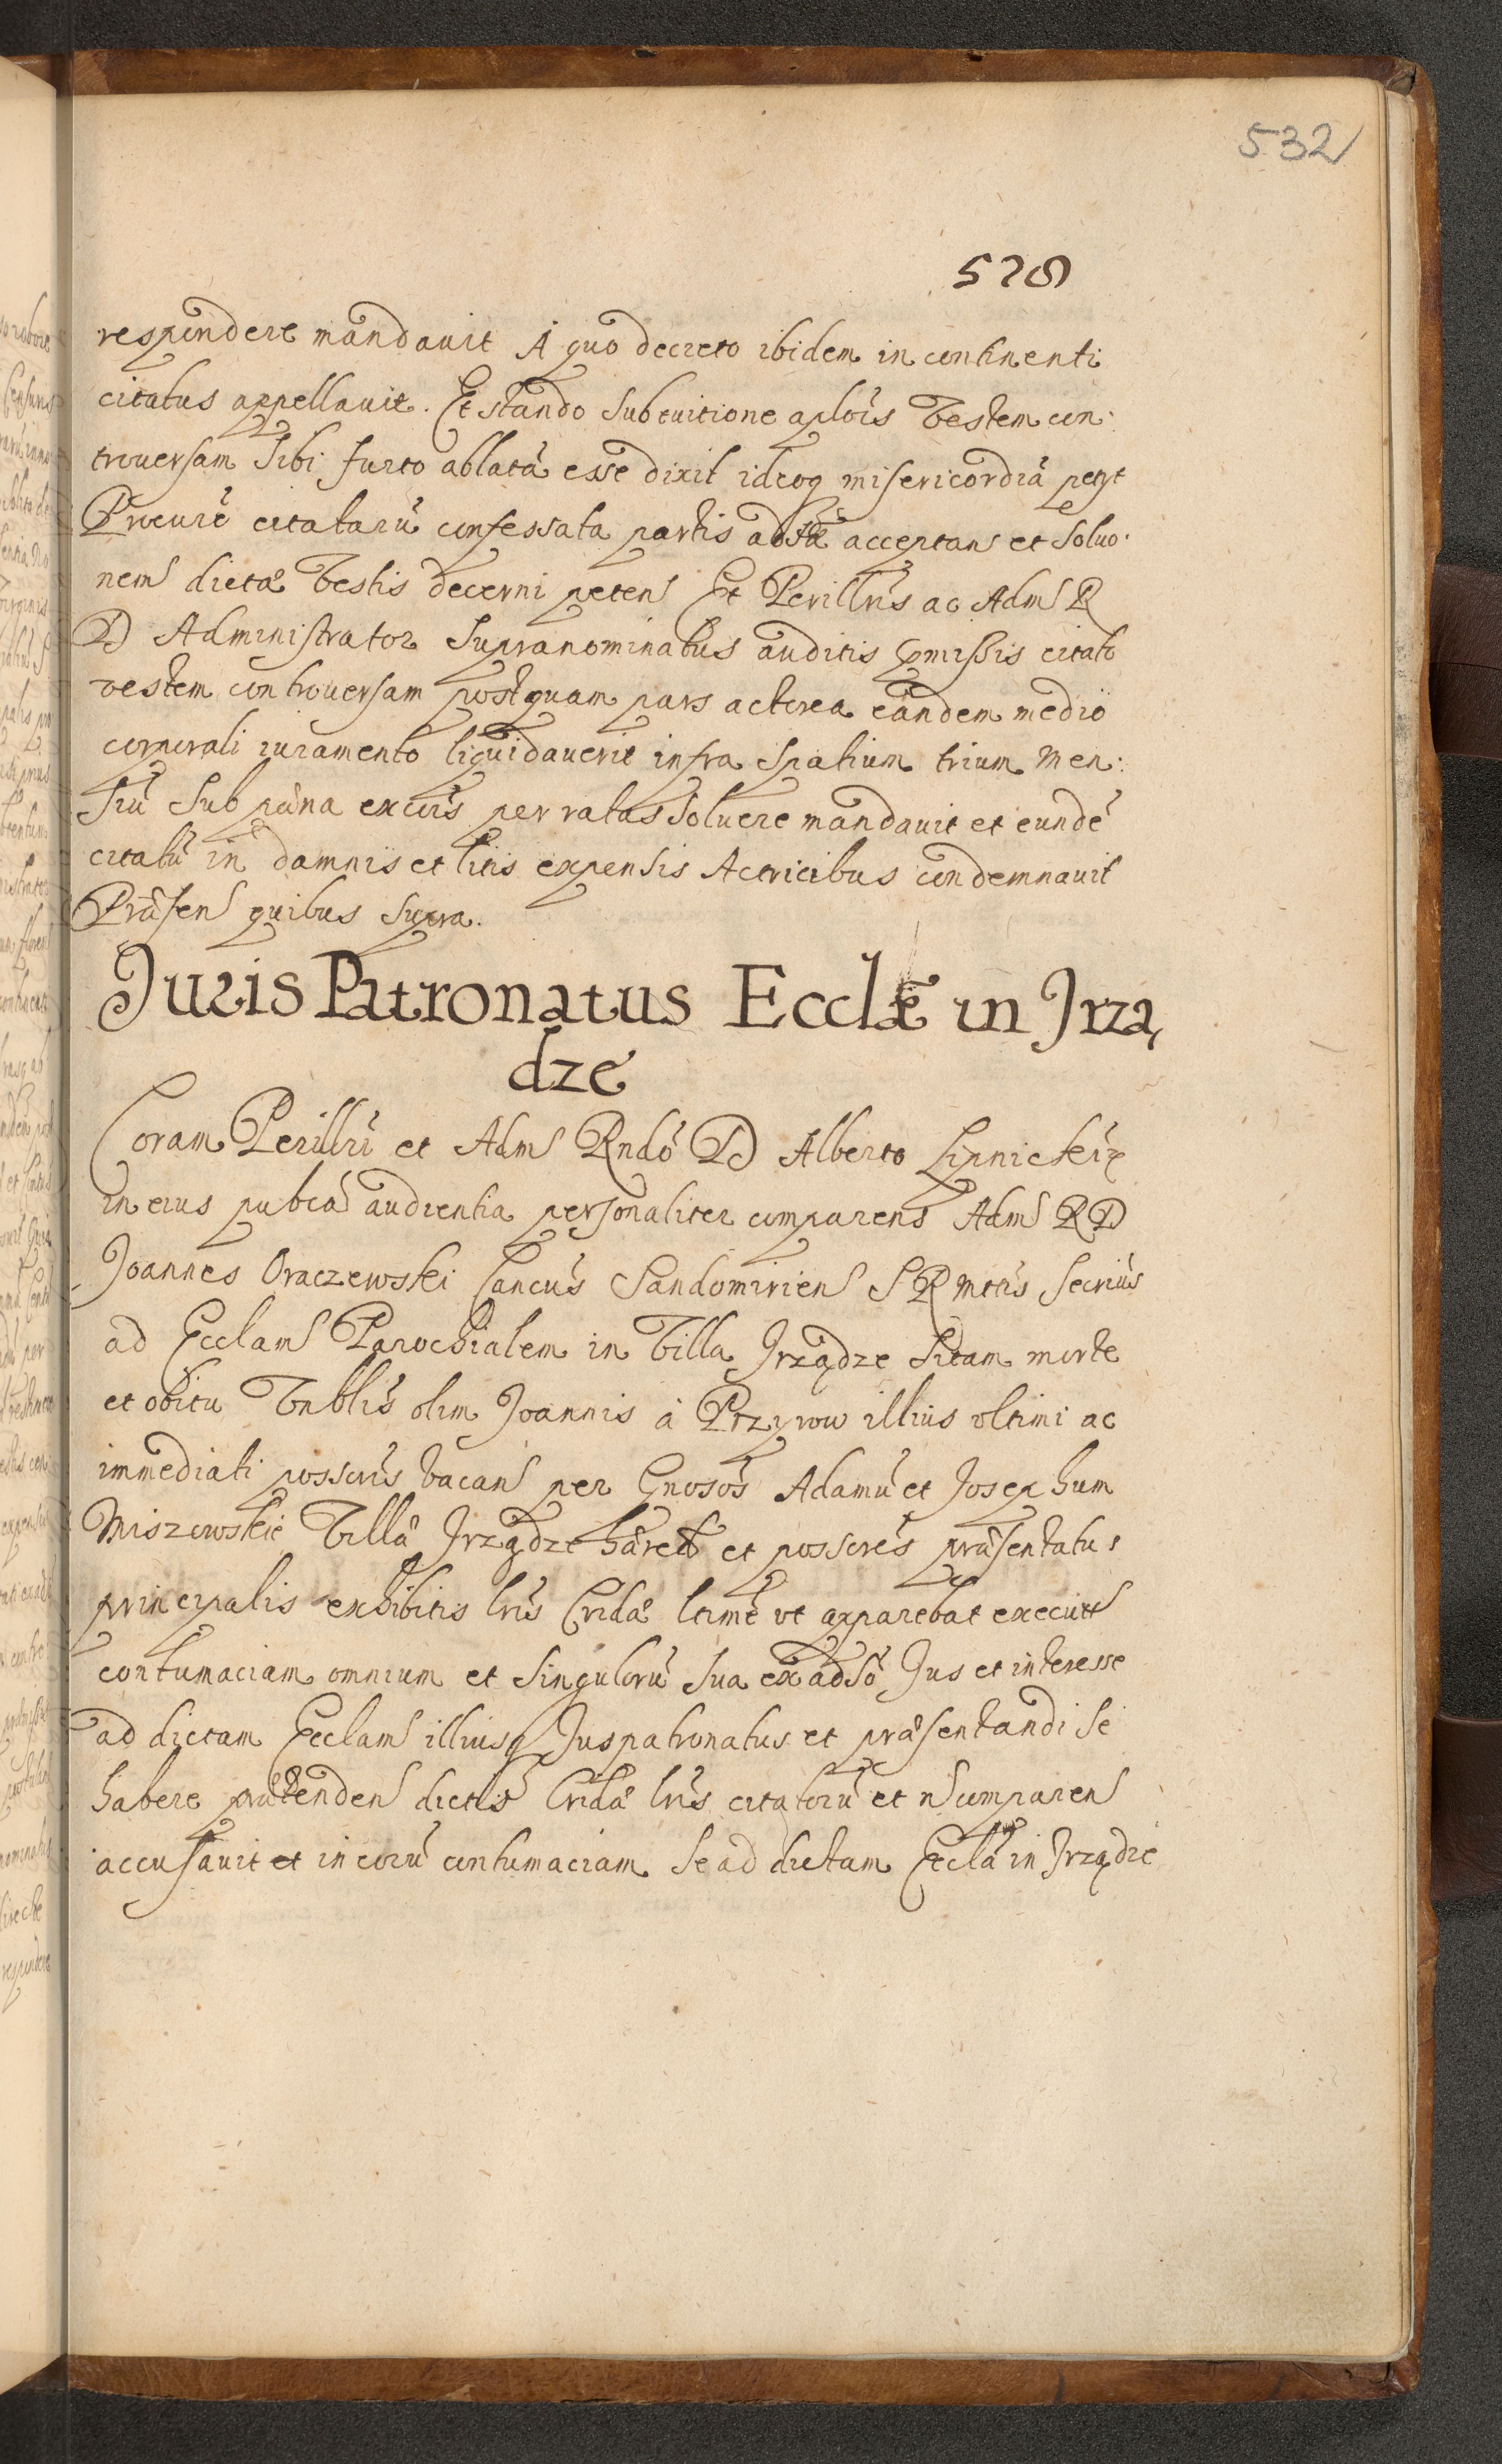 532
528
respondere mandauit A quo decreto ibidem in continenti
citatus appellauit. Et stando sub tuitione aplõis Vestem con:
trouersam sibi furto ablatã esse dixit ideoq misericordiã petyt
Procurẽ citatarũ confessata partis adsã acceptans et soluo:
nem dictæ Vestis decerni petens Et Perillris ac Adm R
D Administrator supranominatus auditis pmissis citato
vestem controuersam postquam pars actorea eandem medio
corporali iuramento liquidauerit infra spatium trium men:
siũ sub pæna excõis per ratas soluere mandauit et eundẽ
citatũ in damnis et litis expensis Actricibus condemnauit
Præsen quibus supra.
Juris Patronatus Ecclæ in Jrzą
dze
Coram Perillri et Adm Rndo D Alberto Lipnicki
in eius pubca audientia personaliter comparens Adm R D
Joannes Oraczewski Cancus Sandomirien S R Mttis Secrius
ad Ecclam Parochialem in Villa Jrządze sitam morte
et obitu Vnblis olim Joannis à Przyrow illius vltimi ac
immediati possoris vacan per Gnosos Adamũ et Josephum
Miszewskie Villæ Jrządze hæred et possores præsentatus
principalis exhibitis lris Cridæ ltime vt apparebat execut
contumaciam omnium et singulorũ sua ex adso Jus et interesse
ad dictam Ecclam illiusq Juspatronatus et præsentandi se
habere prætenden dictis Cridæ lris citatorũ et n comparen
accusauit et in eorũ contumaciam se ad dictam Ecclã in Jrządze